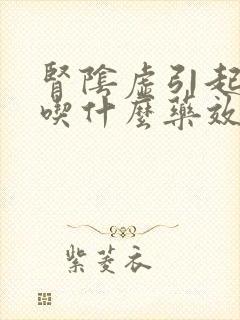 腎陰虛引起
喫什麼藥效
紫菱衣